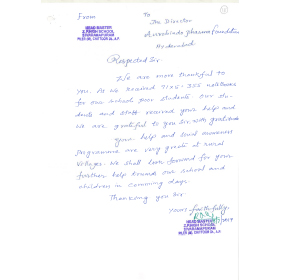 From
HEAD MASTER
Z.P.HIGH SCHOOL
SIVARAMAPURAM
PILER (M), CHITTOOR Dt., A.P.
To
The Director
Aurobindo pharma foundation
Hyderabad
Respected Sir,
We are more thankful to
you. As we received 71×5=355 notebooks
for our school poor students. Our stu-
dents and staff received your help and
we are grateful to you Sir, with gratitude
your help and social awareness
programmes are very great at rural
villages. We shall look forward for your
further help towards our school and
children in comming days.
Thanking you Sir
Yours faithfully,
HEAD MASTER
Z.P.HIGH SCHOOL
SIVARAMAPURAM
PILER (M) CHITTOOR Dt., A.P.